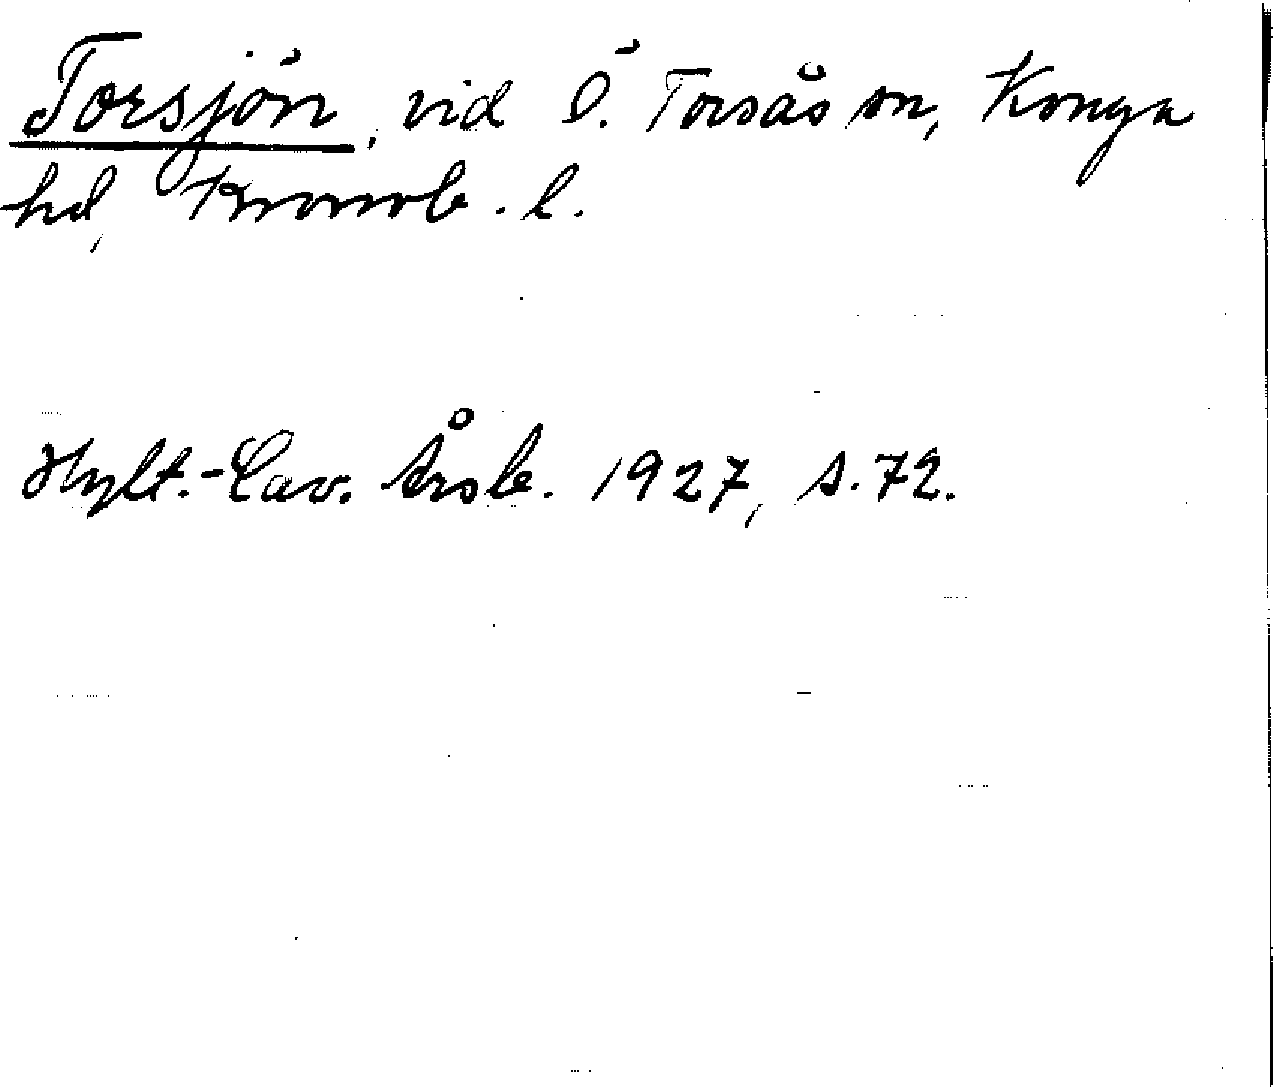 Torsjön, vid Ö. Torsås sn, Konga
hd, Kronob. l.
Hylt.-Cav. Årsb. 1927, s. 72.